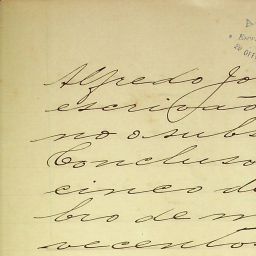 Alfredo Jo
escrivão
no o subs
Concluso
cinco d
bro de m
vecento